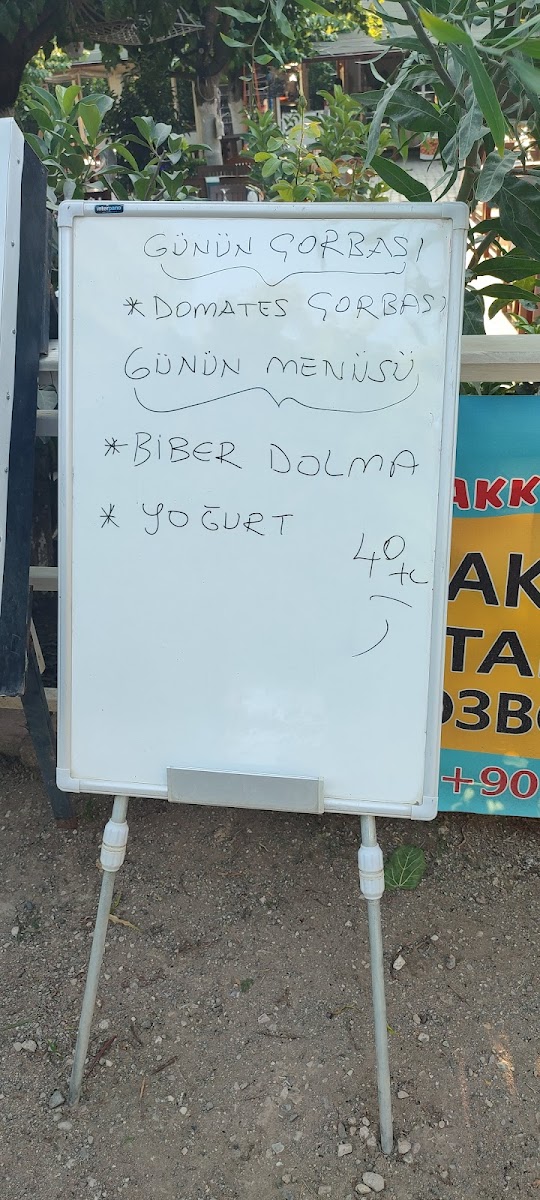 interpano
GÜNÜN ÇORBASI
*DOMATES ÇORBASI
GÜNÜN MENÜSÜ
*BİBER DOLMA
* YOĞURT
40 TL
AKK
AK
TA
ОЗВ
+90